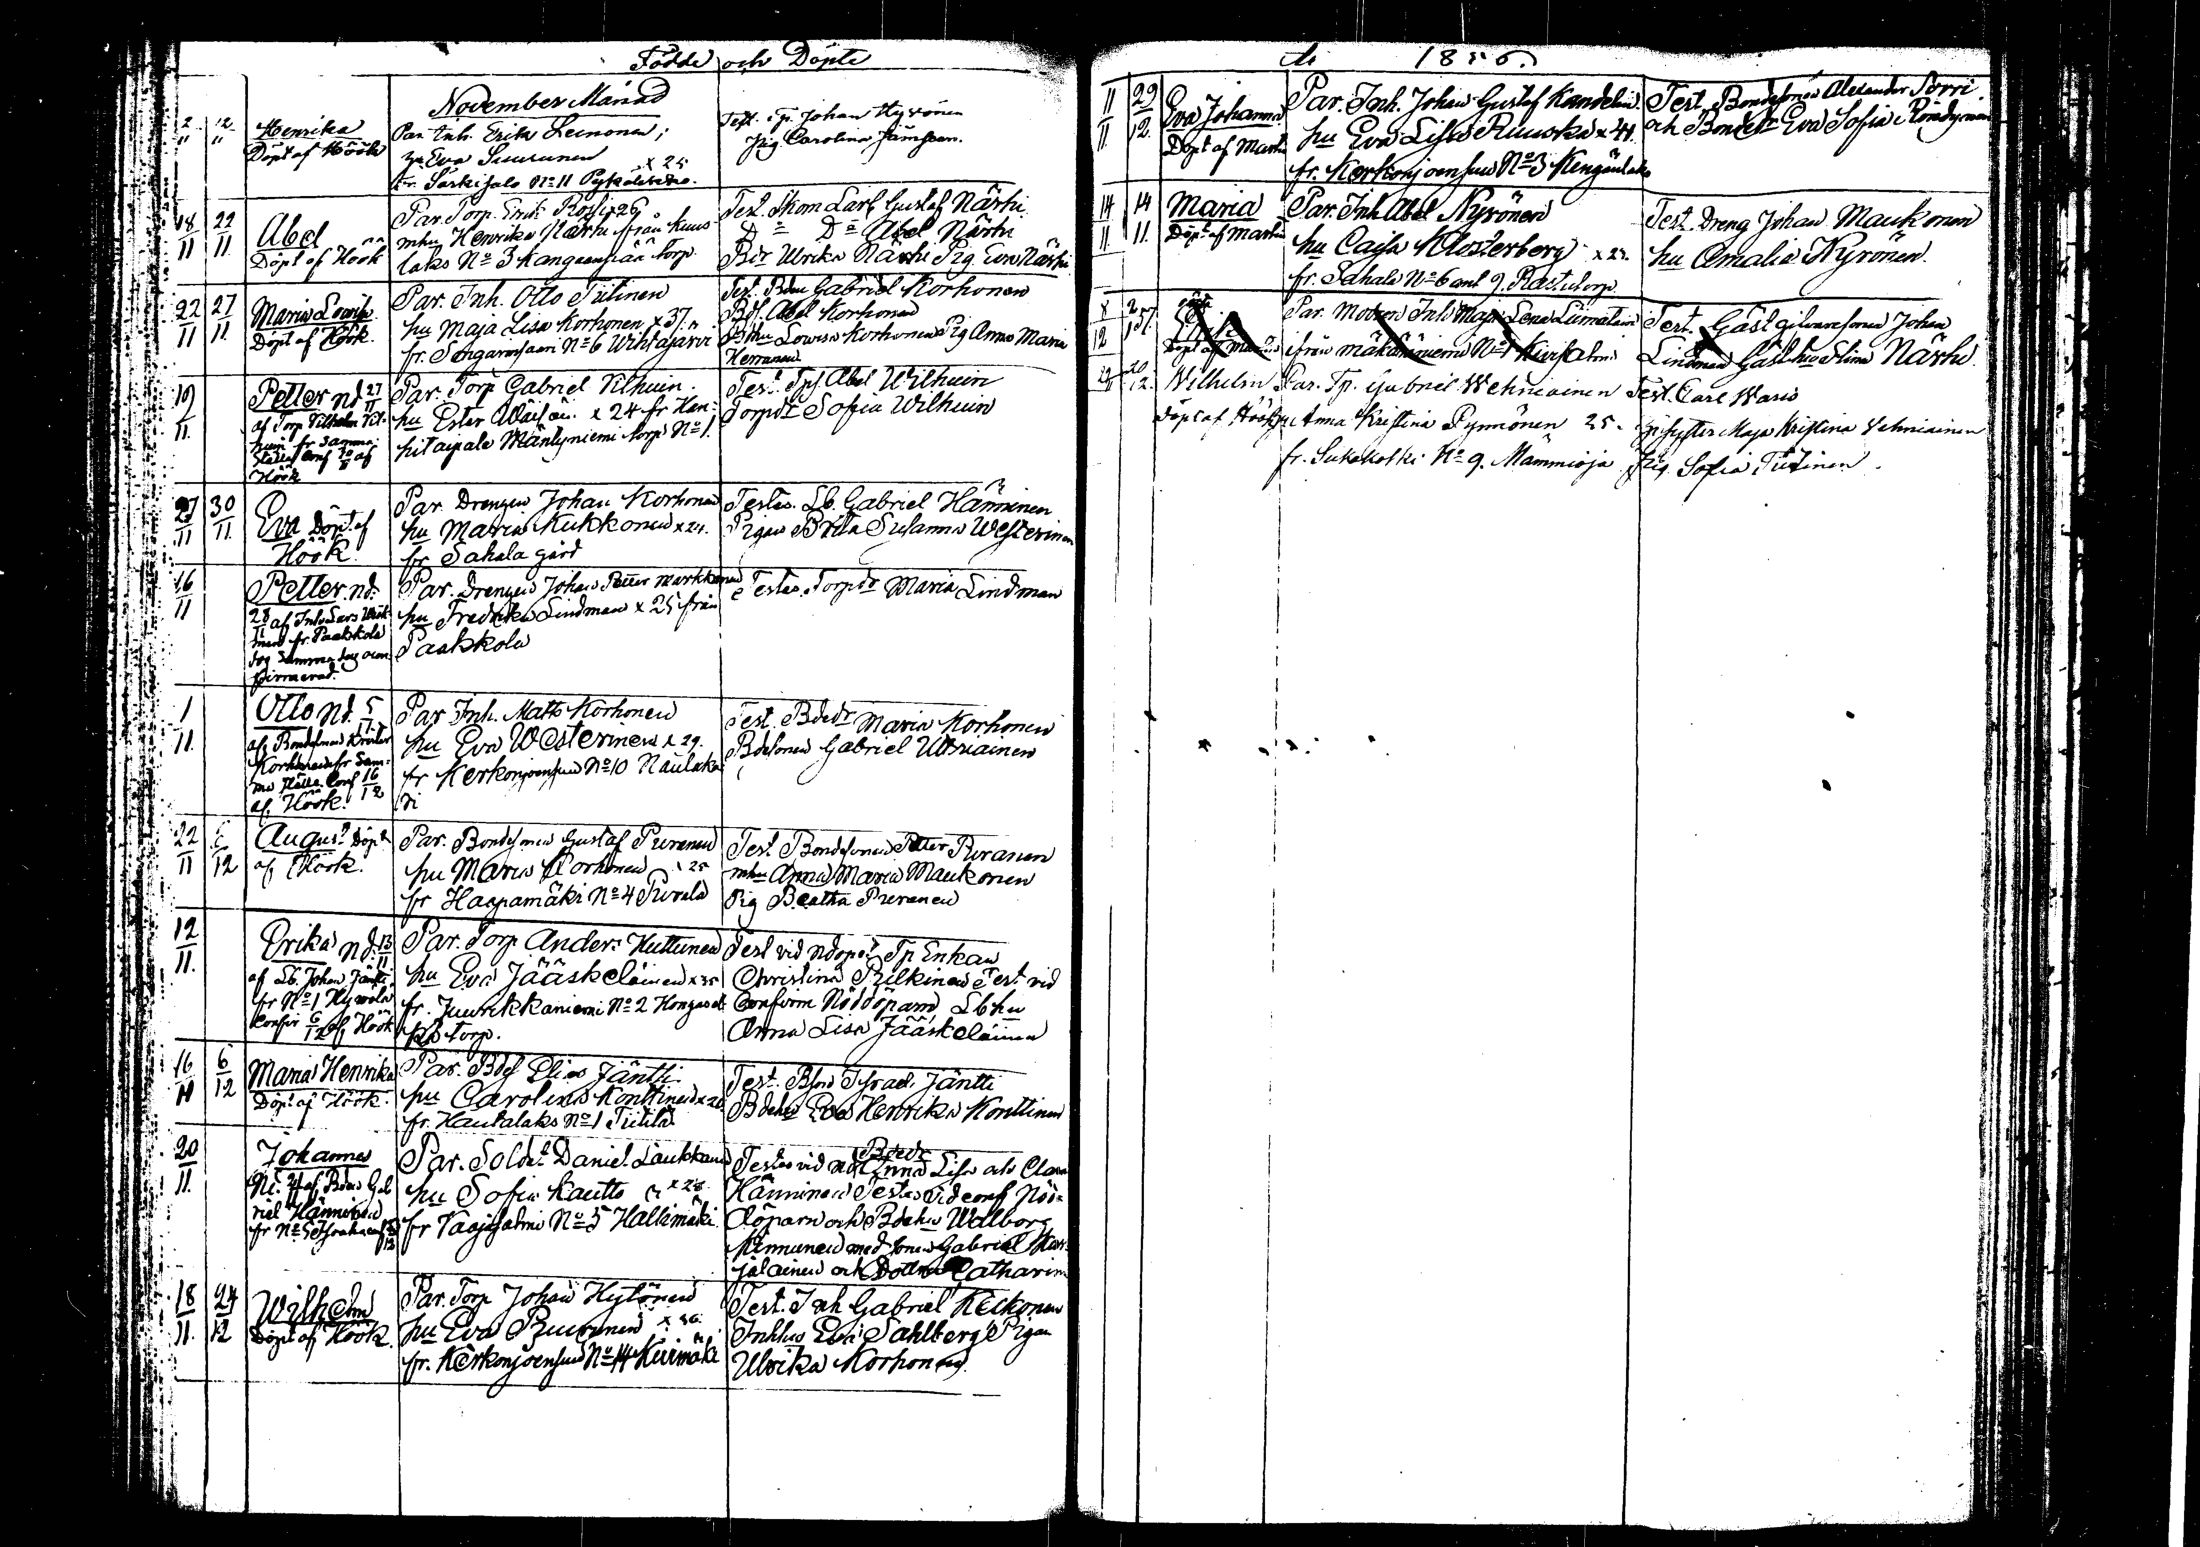 Födde och Döpte
November Månad
2/11 12/11 Henrika
Döpt af Höök
Par. Inh. Erik Leinonen,
hu Eva Suuronen x 25
fr. Särkisalo No 11
Test. Tp. Johan Hyvönen
Pig. Carolina Jämsen.
18/11 22/11 Abel
Döpt af Höök
Par. Torp. Erik Rossi x 26
mhu Henrika Närhi från Kuus
laks No 3 Kangaanpää torp.
Test. Skom Carl Gustaf Närhi
Do Do Abel Närhi
Bdr Ulrika Närhi Pig. Eva Närhi
22/11 27/11 Maria Lovisa
Döpt af Höök.
Par. Inh. Otto Tiitinen
hu Maja Lisa Korhonen x 37.
fr. Songarinsaari No 6 Wihtajärvi
Test. Bdn Gabriel Korhonen
Bds. Abel Korhonen
Bdhu Lovisa Korhonen Pig Anna Maria
Herranen
19/11 Petter nd 27/11
af Torp Vilhelm Vil-
huin fr Samma
ställe Conf 30/11 af
Höök
Par. Torp Gabriel Vilhuin.
hu Ester Väisäin. x 24 fr Han-
hitaipale Mäntyniemi torp No 1.
Test. Tps. Abel Wilhuin
Torpdr Sofia Wilhuin
27/11 30/11 Eva Döpt af
Höök.
Par Drengen Johan Korhonen
hu Maria Kukkonen x 24.
fr Sahala gård
Testes. Lb. Gabriel Hänninen
Pigan Brita Susanna Westerinen
16/11 Petter nd.
28/11 af Inh Lars Wik
man fr. Paakkola
dog samma dag ocon
firmerad.
Par. Drengen Johan Petter Markkanen
hu Fredrika Lindman x 25 från
Paakkola
Testes. Torpdr Maria Lindman
1/11 Otto Nd. 5/11
af Bondesonen
Korhonen fr Sam-
ma ställe Conf 16/12
af Höök.
Par Inh. Matts Korhonen
hu Eva Westerinen x 29.
fr Kerkonjoensuu No 10 Naulaka
ri
Test. Bdedr Maria Korhonen
Bdesonen Gabriel Utriainen
22/11 /12 August Döpt
af Höök.
Par. Bondesonen Gustaf Puranen
hu Maria Korhonen x 25
fr Haapamäki No 4 Purala
Test Bondesonen Petter Puranen
mhu Anna Maria Maukonen
Pig Beatha Puranen
12/11 Erika nd. 13/11
af Lb. Johan Jäntti
fr No 1 Hyvölä
Confir 6/12 af Höök
Par. Torp Anders Huttunen
hu Eva Jääskeläinen x 35
fr. Juurikkaniemi No 2
torp.
Test vid Nödopet Tp Enkan
Christina Pulkinen Test vid
Confirm Nöddöparn Lbhu
Anna Lisa Jääskeläinen
16/11 6/12 Maria Henrika
Döpt af Höök.
Par. Bds Elias Jäntti
hu Carolina Konttinen x 26
fr. Hautalaks No 1 Tiitilä
Test. Bson Israel Jäntti
Bdehu Eva Henrika Konttinen
20/11 Johannes
Nd. af Bdens Gab
riel Hänninen
fr No 5
Par. Soldt Daniel Laukkanen
hu Sofia Kautto x 28.
fr Vaajasalmi No 5 Hallimäki
Testes vid Nd Bdedr Anna Lisa och Clara
Hänninen Testes vid conf Nöd-
döparn och Bdehu Walborg
Kinnunen med sonen Gabriel Kar-
jalainen och Dottren Catharina
18/11 24/12 Wilhelm
Döpt af Höök.
Par. Torp Johan Hytönen
hu Eva Puuronen x 36.
fr. Kerkonjoensuu No 14 Kiurimäki
Test. Inh Gabriel Kekonen
Inhhu Eva Sahlberg Pigan
Ulrika Korhonen
År 1856.
29/12 Eva Johanna
Döpt af Martin
Par. Inh. Johan Gustaf Kandelin
hu Eva Lisa Ruuska x 41.
fr. Kerkonjoensuu No 3 Kengänlaks
Test. Bondesonen Alexander Sorri
och Bondedr Eva Sofia
14/11 14/11 Maria
Döpt af Martin
Par. Inh. Abel Nyrönen
hu Caisa Klosterberg x 29.
fr. Sahala No 6 ant 9. torp.
Test. Dreng Johan Maukonen
hu Amalia Nyrönen.
Döpt af
Par. Modren Inh Maja Lena Liimatain
ifrån Mäkäräniemi No 1
Test. Gästgifvaresonen Johan
Lindman Gästhu Stina Närhi
20/12. Wilhelm
Döpt af Höök
Par. Tp. Gabriel Wehniainen
hu Anna Kristina Pynnönen 25.
fr. Sukakoski No 9. Mämmioja
Test. Carl Waris
Tp syster Maja Kristina Vehniainen
Pig. Sofia Tiitinen.